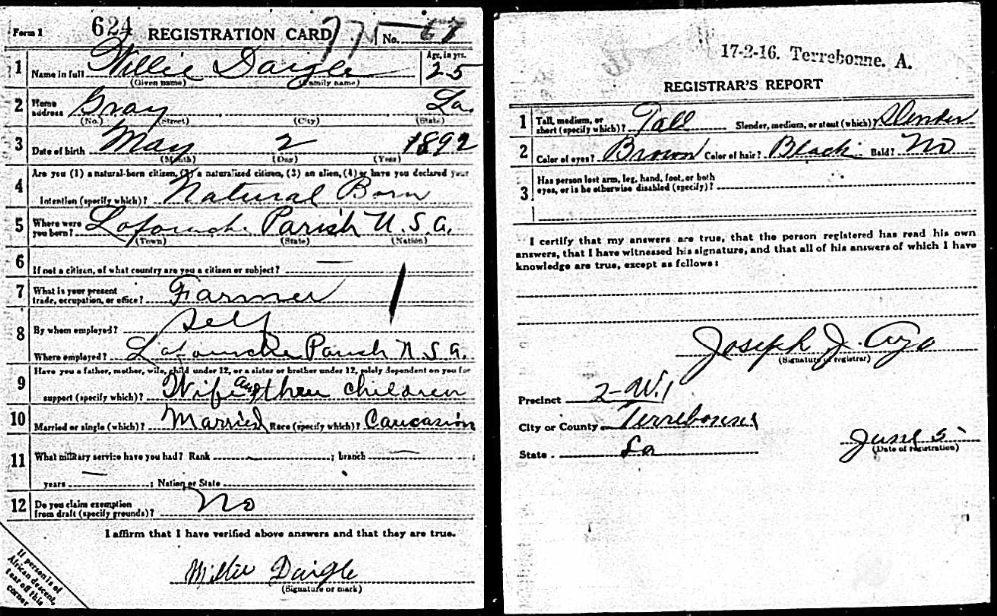 Form 1 624 REGISTRATION CARD 775 No. 67
1 Name in full Willie Daigle Age, in yrs. 25
(Given name) (Family name)
2 Home address Gray La.
(No.) (Street) (City) (State)
3 Date of birth May 2 1892
(Month) (Day) (Year)
4 Are you (1) a natural-born citizen, (2) a naturalized citizen, (3) an alien, (4) or have you declared your
intention (specify which)? Natural Born
5 Where were you born? Lafourche Parish U.S.A.
(Town) (State) (Nation)
6 If not a citizen, of what country are you a citizen or subject? —
7 What is your present trade, occupation, or office? Farmer
8 By whom employed? Self
Where employed? Lafourche Parish U.S.A.
9 Have you a father, mother, wife, child under 12, or a sister or brother under 12, solely dependent on you for
support (specify which)? Wife and three children
10 Married or single (which)? Married Race (specify which)? Caucasian
11 What military service have you had? Rank — ; branch — ;
years — ; Nation or State
12 Do you claim exemption from draft (specify grounds)? No
I affirm that I have verified above answers and that they are true.
Willie Daigle
(Signature or mark)
If person is of
African descent,
tear off this
corner
17-2-16. Terrebonne. A.
REGISTRAR'S REPORT
1 Tall, medium, or short (specify which)? Tall Slender, medium, or stout (which)? Slender
2 Color of eyes? Brown Color of hair? Black Bald? No
3 Has person lost arm, leg, hand, foot, or both
eyes, or is he otherwise disabled (specify)?
I certify that my answers are true, that the person registered has read his own
answers, that I have witnessed his signature, and that all of his answers of which I have
knowledge are true, except as follows:
Joseph J. Ayo
(Signature of registrar)
Precinct 2-W.1
City or County Terrebonne
State La
June 5
(Date of registration)